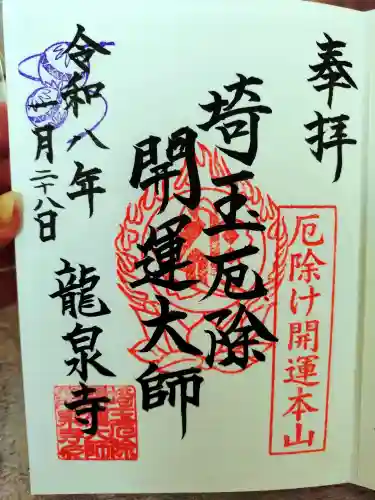 奉拝
厄除け開運本山
埼玉厄除
開運大師
令和八年
一月二十八日
龍泉寺